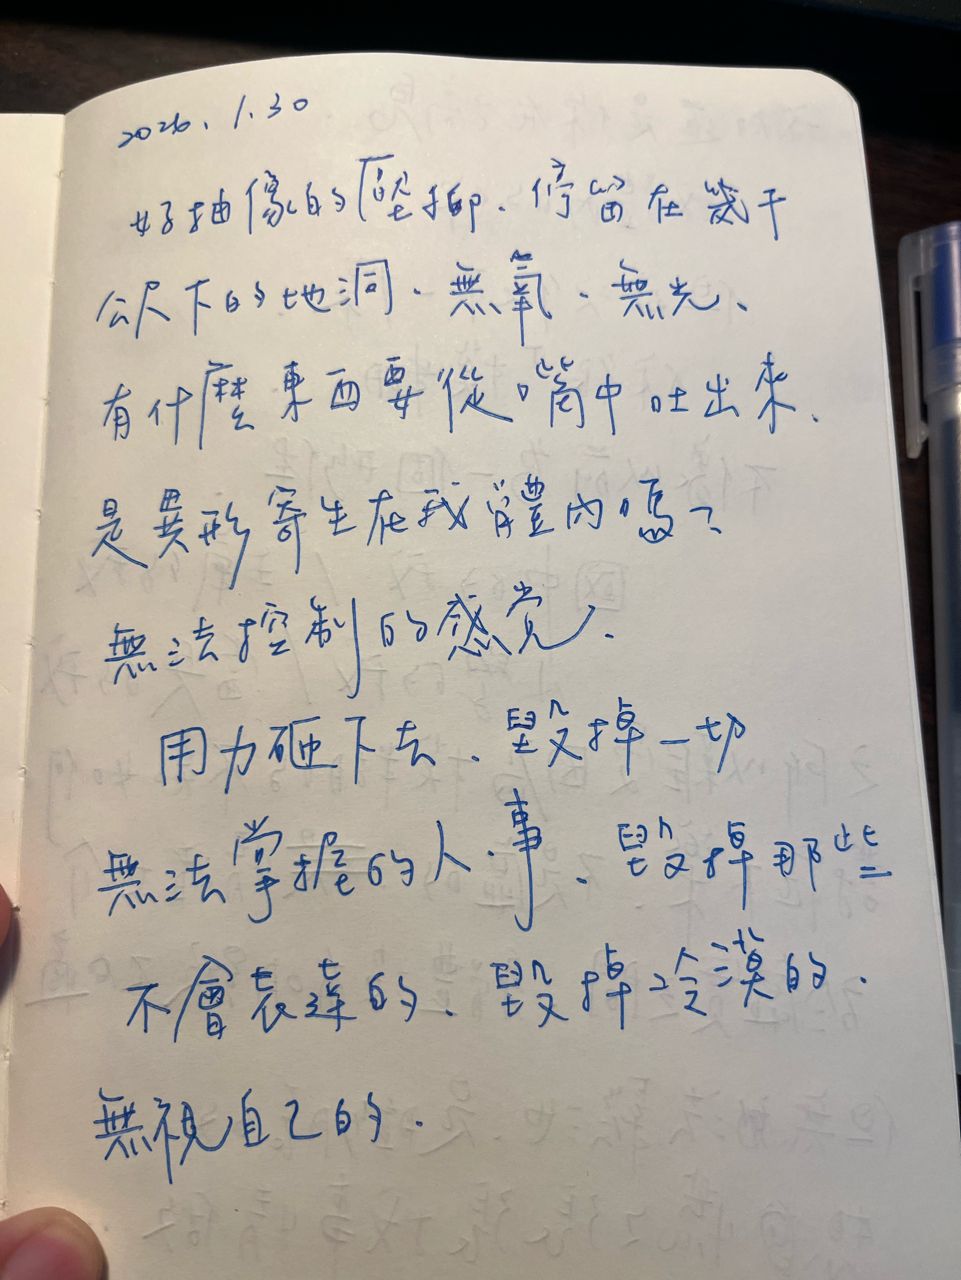 2026. 1. 30
好抽像的壓抑、停留在幾千
公尺下的地洞、無氧、無光、
有什麼東西要從嘴中吐出來、
是異形寄生在我體內嗎？
無法控制的感覚、
用力砸下去、毀掉一切
無法掌握的人、事、毀掉那些
不會表達的、毀掉冷漠的、
無視自己的、